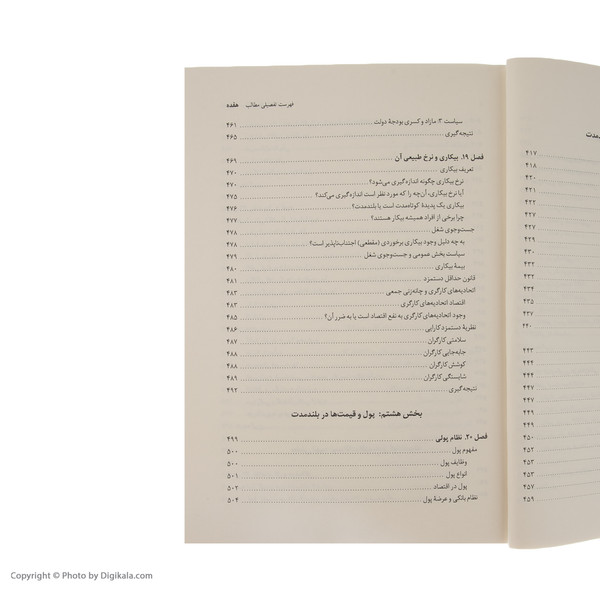 فهرست تفصیلی مطالب هفده
سیاست ۳: مازاد و کسری بودجهٔ دولت ۴۶۱
نتیجه‌گیری ۴۶۵
فصل ۱۹. بیکاری و نرخ طبیعی آن ۴۶۹
تعریف بیکاری ۴۷۰
نرخ بیکاری چگونه اندازه‌گیری می‌شود؟ ۴۷۰
آیا نرخ بیکاری، آن‌چه را که مورد نظر است اندازه‌گیری می‌کند؟ ۴۷۵
بیکاری یک پدیدهٔ کوتاه‌مدت است یا بلندمدت؟ ۴۷۶
چرا برخی از افراد همیشه بیکار هستند؟ ۴۷۷
جست‌وجوی شغل ۴۷۸
به چه دلیل وجود بیکاری برخوردی (مقطعی) اجتناب‌ناپذیر است؟ ۴۷۸
سیاست بخش عمومی و جست‌وجوی شغل ۴۷۹
بیمهٔ بیکاری ۴۸۰
قانون حداقل دستمزد ۴۸۱
اتحادیه‌های کارگری و چانه‌زنی جمعی ۴۸۳
اقتصاد اتحادیه‌های کارگری ۴۸۳
وجود اتحادیه‌های کارگری به نفع اقتصاد است یا به ضرر آن؟ ۴۸۵
نظریهٔ دستمزد کارایی ۴۸۶
سلامتی کارگران ۴۸۷
جابه‌جایی کارگران ۴۸۸
کوشش کارگران ۴۸۸
شایستگی کارگران ۴۸۹
نتیجه‌گیری ۴۹۲
بخش هشتم: پول و قیمت‌ها در بلندمدت
فصل ۲۰. نظام پولی ۴۹۹
مفهوم پول ۵۰۰
وظایف پول ۵۰۰
انواع پول ۵۰۱
پول در اقتصاد ۵۰۲
نظام بانکی و عرضهٔ پول ۵۰۴
ندمدت
۴۱۷
۴۱۸
۴۲۰
۴۲۱
۴۲۲
۴۲۷
۴۲۷
۴۲۹
۴۳۰
۴۳۲
۴۳۲
۴۳۴
۴۳۵
۴۳۷
۴۴۰
۴۴۳
۴۴۴
۴۴۴
۴۴۷
۴۴۷
۴۴۹
۴۴۹
۴۵۰
۴۵۲
۴۵۳
۴۵۷
۴۵۹
Copyright © Photo by Digikala.com